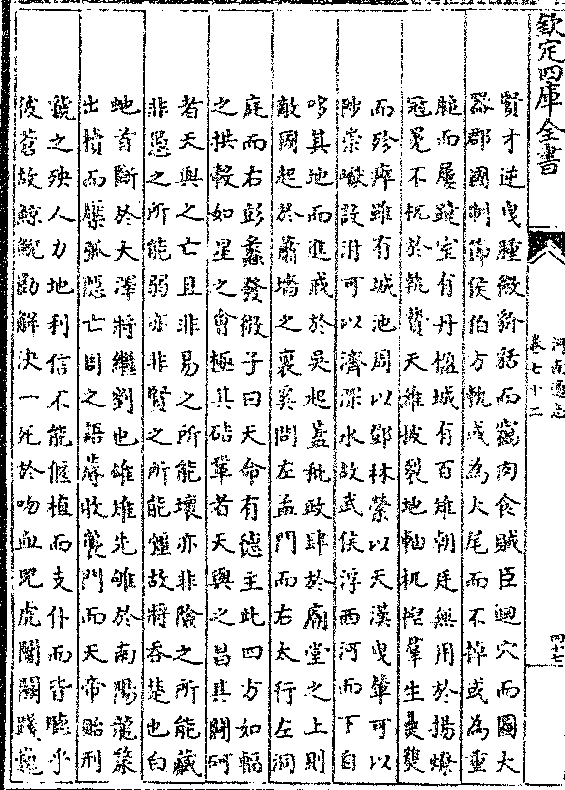 欽定四庫全書
河南通志
卷七十二
四十七
賢才逆曳腫微新語而竄肉食賊臣迴穴而國大
器郡國制侮侯伯方執或為大尾而不掉或為重
而屢躓室有丹楹城有百雉朝廷無用於揚燎
冠冕不杌於執贄天維披裂地軸杌隉羣生
而殄瘁雖有城池周以鄧林縈以天漢曳輦可以
陟崇巘設泭可以濟深水故武侯浮西河而下自
哆其地而進戒於吳起蓋秕政肆於廟堂之上則
敵國起於蕭墻之裏奚問左孟門而右太行左洞
庭而右彭蠡發微子曰天命有德主此四方如輻
之拱轂如星之㑹極其砧鞏者天與之昌其闢砢
者天與之亡且非易之所能壞亦非險之所能藏
非愚之所能弱亦非賢之所能彊故將吞楚也白
虵首斷於大澤將繼劉也雄雉先雊於南陽龍漦
出櫝而檿弧隠亡周之語蓐收襲門而天帝貽刑
虢之殃人力地利信不能偃植而支仆而皆聽乎
彼蒼故鯨鯢勘解決一死於吻血兕虎鬭闞踐巍